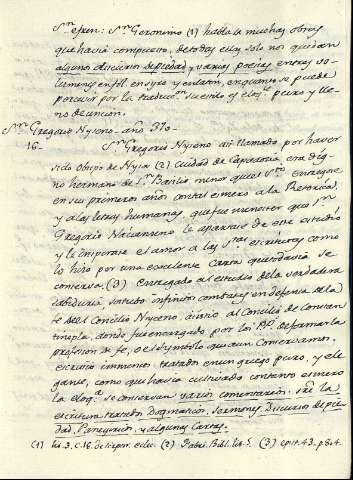 Sn. efren: Sn. Geronimo (1) habla de muchas obras
que havia compuesto, de todas ellas solo nos quedan
algunos discursos de piedad, y varias poesias en tres vo-
lumenes en fol. en syro y en latin, en quanto se puede
percivir por la traduccn. su estilo es eloqe. puro y lle-
no de uncion.
Sn. Gregorio Nyseno - año 370-
16- Sn. Gregorio Nyseno asi llamado por haver
sido obispo de Nysa (2) ciudad de Capadocia, era dig-
no hermano de Sn. Basilio menor que el Sto.
en sus primeros años con tal esmero a la Retorica
y a las letras humanas, que fue menester que Sn.
Gregorio Nacianceno le apartase de este estudio
y le inspirase el amor a las Stas. escrituras como
lo hizo por una excelente carta que todavia se
conserva. (3) entregado al estudio de la verdadera
sabiduria, sostubo infinitos combates en defensa de la
fe del Concilio Nyceno, asistio al Concilio de Constan
tinopla, donde fue encargado por los PP. de formar la
profesion de fe, o el Symbolo que aun conservamos.
escrivio inmensos tratados en un griego puro, y ele
gante, como que havia cultivado con tanto esmero
la eloqa. se conservan varios comentarios sre. la
escritura tratados Dogmaticos, Sermones, Discursos de pie
dad, Panegyricos, y algunas Cartas.
(1) lib. 3. c. 16. de scrpor. ecles. (2) Fabri. Bibl. lib. 5. (3) epist. 43. p. 804.